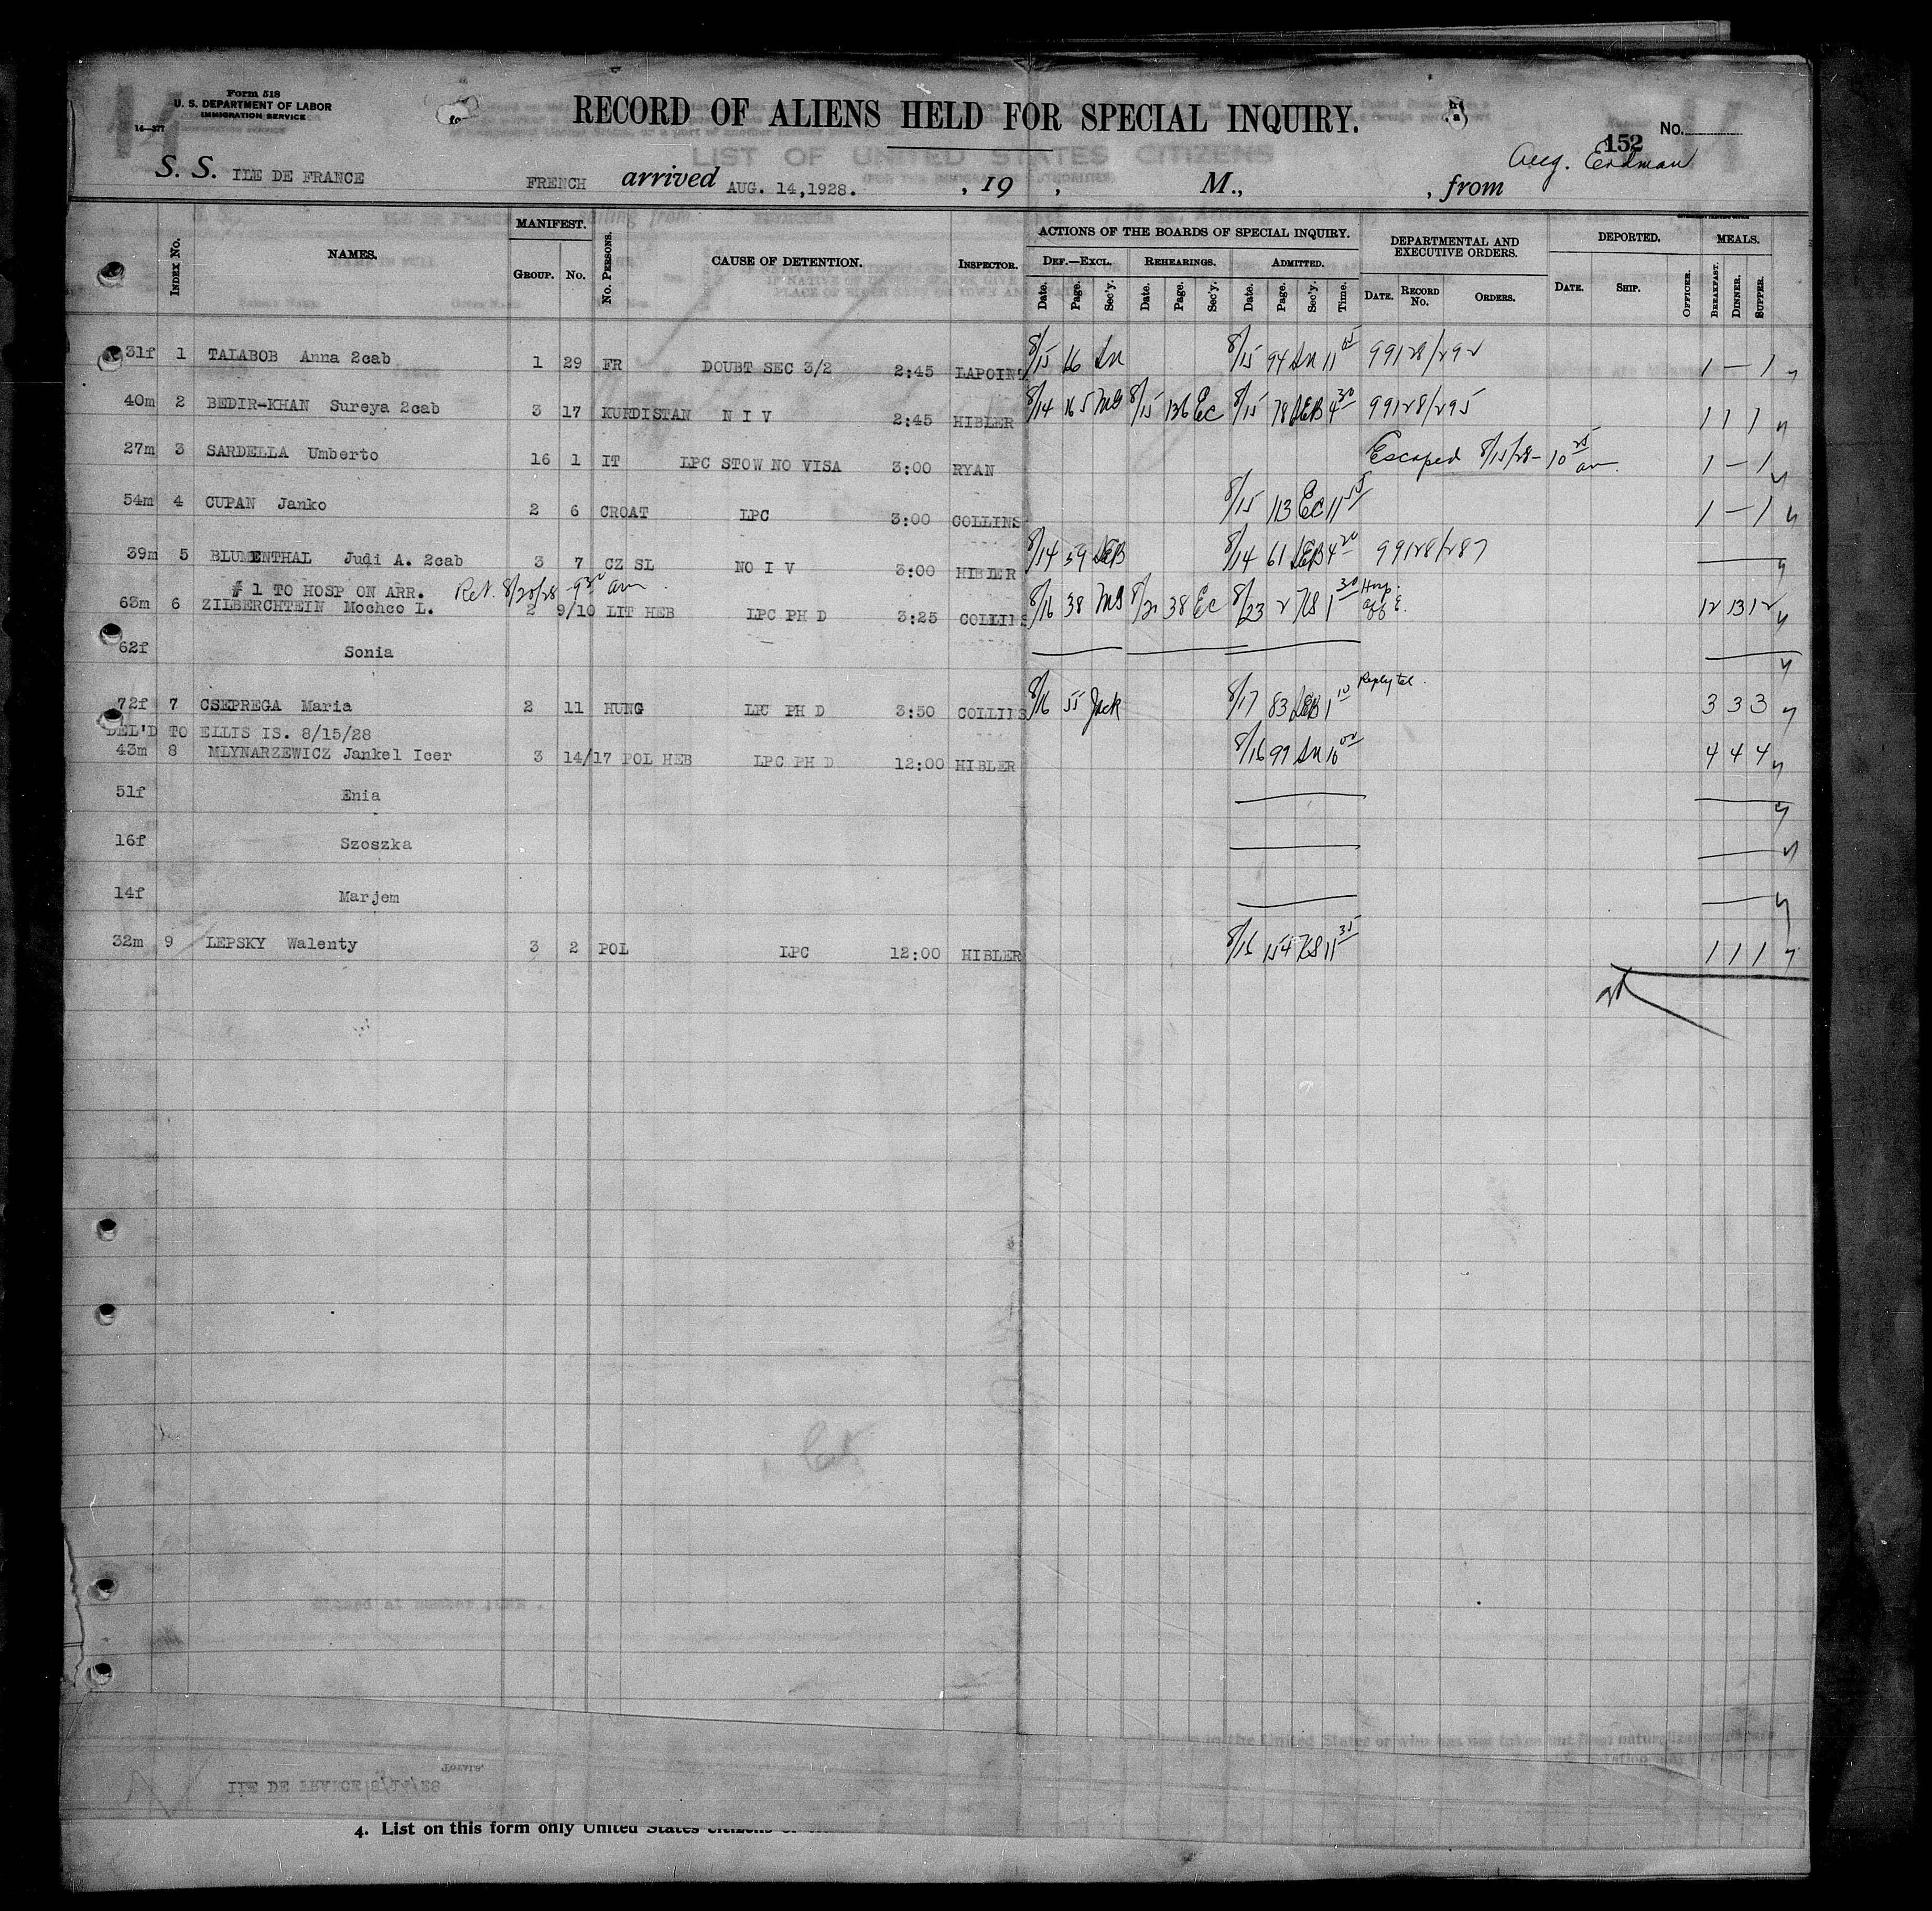 Form 518
U. S. DEPARTMENT OF LABOR
IMMIGRATION SERVICE
14—377
RECORD OF ALIENS HELD FOR SPECIAL INQUIRY.
LIST OF UNITED STATES CITIZENS
No.
152
Aug. Erdman
S. S. ILE DE FRANCE FRENCH arrived AUG. 14,1928. , 19 , M., , from
INDEX No. NAMES. MANIFEST. GROUP. No. No. PERSONS. CAUSE OF DETENTION. INSPECTOR. ACTIONS OF THE BOARDS OF SPECIAL INQUIRY. DEF.—EXCL. Date. Page. Sec'y. REHEARINGS. Date. Page. Sec'y. ADMITTED. Date. Page. Sec'y. Time. DEPARTMENTAL AND EXECUTIVE ORDERS. DATE. RECORD No. ORDERS. DEPORTED. DATE. SHIP. OFFICER. MEALS. BREAKFAST. DINNER. SUPPER.
31f 1 TALABOB Anna 2cab 1 29 FR DOUBT SEC 3/2 2:45 LAPOINT 8/15 16 8/15 94 11 05 99128/292 1 — 1
40m 2 BEDIR-KHAN Sureya 2cab 3 17 KURDISTAN N I V 2:45 HIBLER 8/14 165 MS 8/15 136 EC 8/15 78 SEB 4 30 99128/295 1 1 1
27m 3 SARDELLA Umberto 16 1 IT LPC STOW NO VISA 3:00 RYAN Escaped 8/15/28 - 10 25 am. 1 — 1
54m 4 CUPAN Janko 2 6 CROAT LPC 3:00 COLLINS 8/15 113 EC 11 55 1 — 1
39m 5 BLUMENTHAL Judi A. 2cab 3 7 CZ SL NO I V 3:00 HIBLER 8/14 59 SEB 8/14 61 SEB 4 20 99128/287
# 1 TO HOSP ON ARR. Ret. 8/20/28 - 9 30 am.
63m 6 ZILBERCHTEIN Mochco L. 2 9/10 LIT HEB LPC PH D 3:25 COLLINS 8/16 38 MS 8/21 38 EC 8/23 2 KS 1 30 Hosp. 12 13 12
62f Sonia
72f 7 CSEPREGA Maria 2 11 HUNG LPC PH D 3:50 COLLINS 8/16 55 Jack 8/17 83 SEB 1 10 Reply tel. 3 3 3
DEL'D TO ELLIS IS. 8/15/28
43m 8 MLYNARZEWICZ Jankel Icer 3 14/17 POL HEB LPC PH D 12:00 HIBLER 8/16 99 10 00 4 4 4
51f Enia
16f Szoszka
14f Marjem
32m 9 LEPSKY Walenty 3 2 POL LPC 12:00 HIBLER 8/16 154 KS 11 35 1 1 1
4. List on this form only United States Citizens